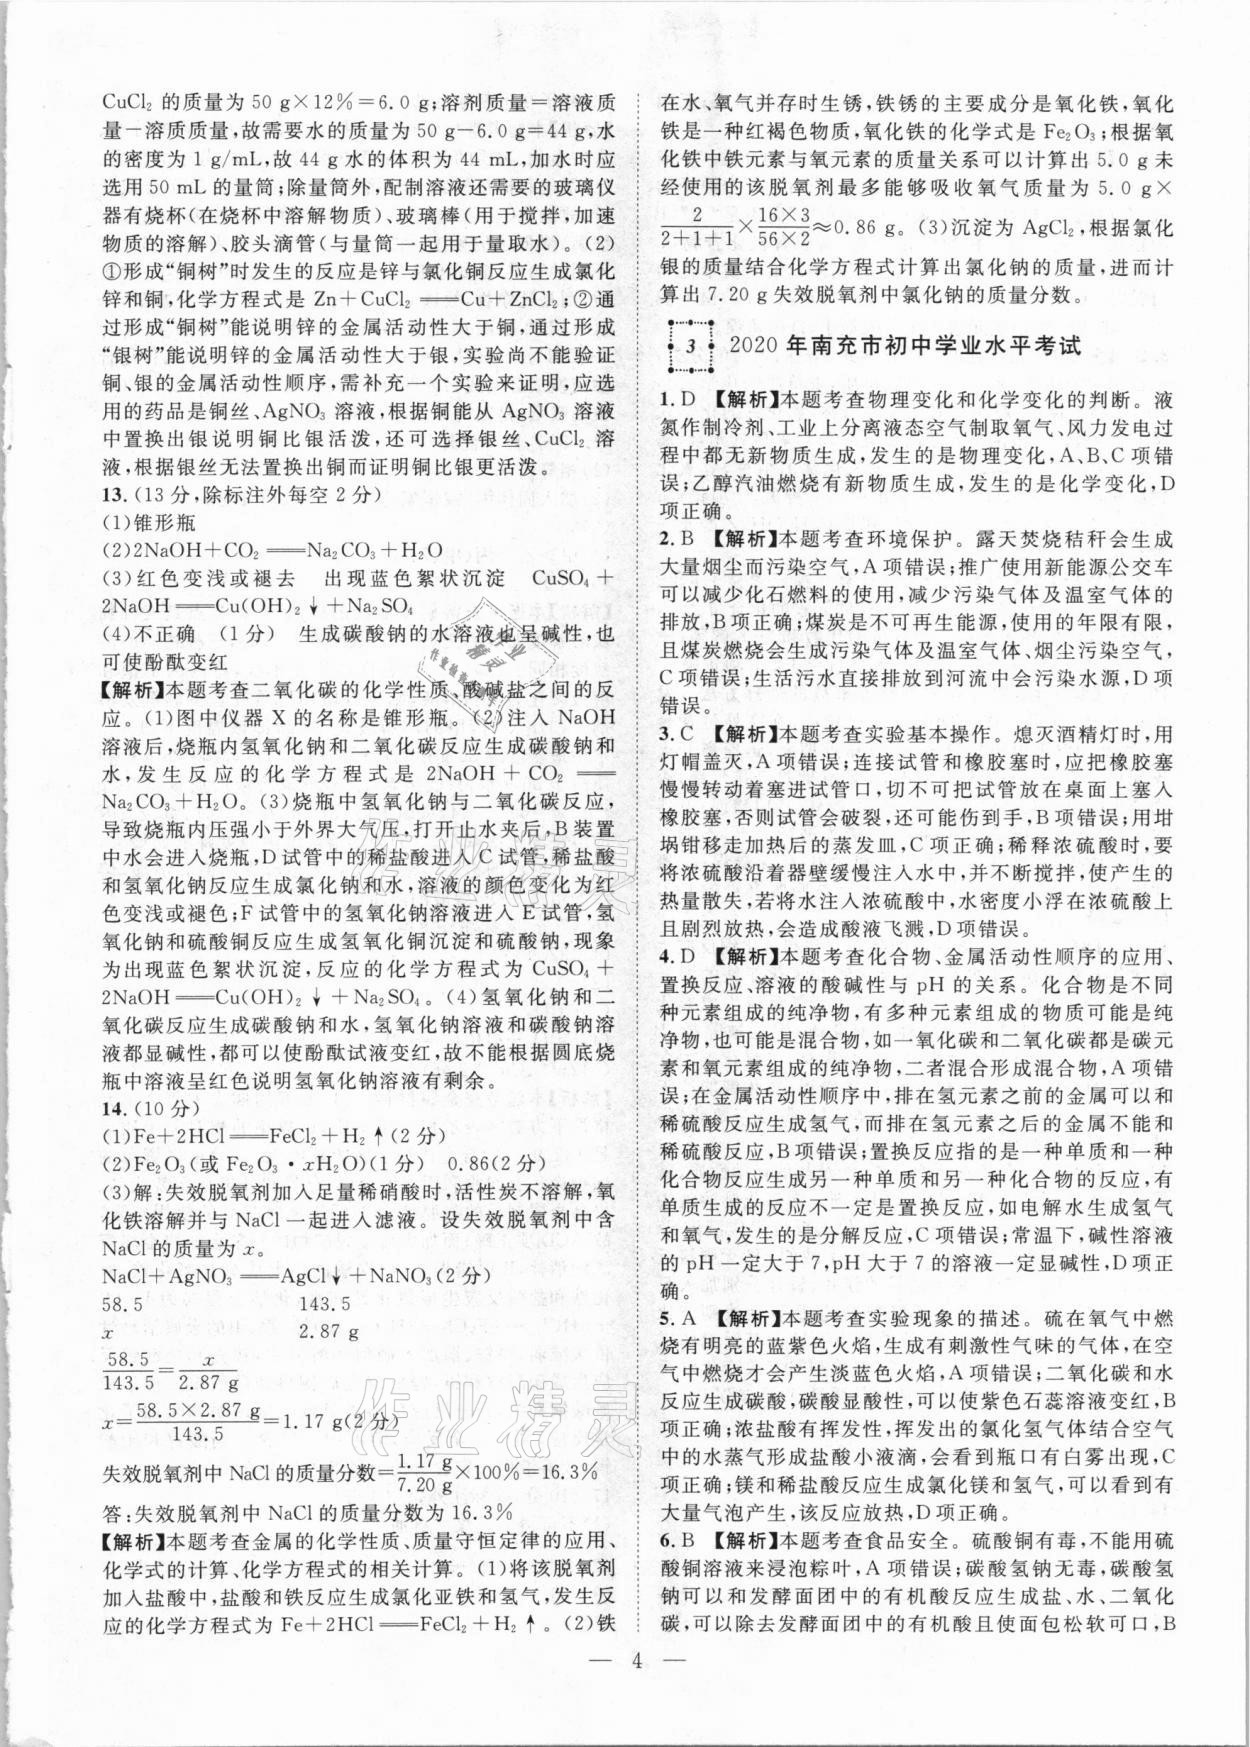 CuCl₂ 的质量为 50 g×12%=6.0 g;溶剂质量=溶液质
量-溶质质量,故需要水的质量为 50 g-6.0 g=44 g,水
的密度为 1 g/mL,故 44 g 水的体积为 44 mL,加水时应
选用 50 mL 的量筒;除量筒外,配制溶液还需要的玻璃仪
器有烧杯(在烧杯中溶解物质)、玻璃棒(用于搅拌,加速
物质的溶解)、胶头滴管(与量筒一起用于量取水)。(2)
①形成“铜树”时发生的反应是锌与氯化铜反应生成氯化
锌和铜,化学方程式是 Zn+CuCl₂══Cu+ZnCl₂;②通
过形成“铜树”能说明锌的金属活动性大于铜,通过形成
“银树”能说明锌的金属活动性大于银,实验尚不能验证
铜、银的金属活动性顺序,需补充一个实验来证明,应选
用的药品是铜丝、AgNO₃ 溶液,根据铜能从 AgNO₃ 溶液
中置换出银说明铜比银活泼,还可选择银丝、CuCl₂ 溶
液,根据银丝无法置换出铜而证明铜比银更活泼。
13.(13 分,除标注外每空 2 分)
(1)锥形瓶
(2)2NaOH+CO₂══Na₂CO₃+H₂O
(3)红色变浅或褪去 出现蓝色絮状沉淀 CuSO₄+
2NaOH══Cu(OH)₂↓+Na₂SO₄
(4)不正确 (1 分) 生成碳酸钠的水溶液也呈碱性,也
可使酚酞变红
【解析】本题考查二氧化碳的化学性质、酸碱盐之间的反
应。(1)图中仪器 X 的名称是锥形瓶。(2)注入 NaOH
溶液后,烧瓶内氢氧化钠和二氧化碳反应生成碳酸钠和
水,发生反应的化学方程式是 2NaOH+CO₂══
Na₂CO₃+H₂O。(3)烧瓶中氢氧化钠与二氧化碳反应,
导致烧瓶内压强小于外界大气压,打开止水夹后,B 装置
中水会进入烧瓶,D 试管中的稀盐酸进入 C 试管,稀盐酸
和氢氧化钠反应生成氯化钠和水,溶液的颜色变化为红
色变浅或褪色;F 试管中的氢氧化钠溶液进入 E 试管,氢
氧化钠和硫酸铜反应生成氢氧化铜沉淀和硫酸钠,现象
为出现蓝色絮状沉淀,反应的化学方程式为 CuSO₄+
2NaOH══Cu(OH)₂↓+Na₂SO₄。(4)氢氧化钠和二
氧化碳反应生成碳酸钠和水,氢氧化钠溶液和碳酸钠溶
液都显碱性,都可以使酚酞试液变红,故不能根据圆底烧
瓶中溶液呈红色说明氢氧化钠溶液有剩余。
14.(10 分)
(1)Fe+2HCl══FeCl₂+H₂↑(2 分)
(2)Fe₂O₃(或 Fe₂O₃·xH₂O)(1 分) 0.86(2 分)
(3)解:失效脱氧剂加入足量稀硝酸时,活性炭不溶解,氧
化铁溶解并与 NaCl 一起进入滤液。设失效脱氧剂中含
NaCl 的质量为 x。
NaCl+AgNO₃══AgCl↓+NaNO₃(2 分)
58.5 143.5
x 2.87 g
58.5/143.5=x/2.87 g
x=58.5×2.87 g/143.5=1.17 g(2 分)
失效脱氧剂中 NaCl 的质量分数=1.17 g/7.20 g×100%=16.3%
答:失效脱氧剂中 NaCl 的质量分数为 16.3%
【解析】本题考查金属的化学性质、质量守恒定律的应用、
化学式的计算、化学方程式的相关计算。(1)将该脱氧剂
加入盐酸中,盐酸和铁反应生成氯化亚铁和氢气,发生反
应的化学方程式为 Fe+2HCl══FeCl₂+H₂↑。(2)铁
在水、氧气并存时生锈,铁锈的主要成分是氧化铁,氧化
铁是一种红褐色物质,氧化铁的化学式是 Fe₂O₃;根据氧
化铁中铁元素与氧元素的质量关系可以计算出 5.0 g 未
经使用的该脱氧剂最多能够吸收氧气质量为 5.0 g×
2/(2+1+1)×(16×3)/(56×2)≈0.86 g。(3)沉淀为 AgCl₂,根据氯化
银的质量结合化学方程式计算出氯化钠的质量,进而计
算出 7.20 g 失效脱氧剂中氯化钠的质量分数。
3 2020 年南充市初中学业水平考试
1. D 【解析】本题考查物理变化和化学变化的判断。液
氮作制冷剂、工业上分离液态空气制取氧气、风力发电过
程中都无新物质生成,发生的是物理变化,A、B、C 项错
误;乙醇汽油燃烧有新物质生成,发生的是化学变化,D
项正确。
2. B 【解析】本题考查环境保护。露天焚烧秸秆会生成
大量烟尘而污染空气,A 项错误;推广使用新能源公交车
可以减少化石燃料的使用,减少污染气体及温室气体的
排放,B 项正确;煤炭是不可再生能源,使用的年限有限,
且煤炭燃烧会生成污染气体及温室气体、烟尘污染空气,
C 项错误;生活污水直接排放到河流中会污染水源,D 项
错误。
3. C 【解析】本题考查实验基本操作。熄灭酒精灯时,用
灯帽盖灭,A 项错误;连接试管和橡胶塞时,应把橡胶塞
慢慢转动着塞进试管口,切不可把试管放在桌面上塞入
橡胶塞,否则试管会破裂,还可能伤到手,B 项错误;用坩
埚钳移走加热后的蒸发皿,C 项正确;稀释浓硫酸时,要
将浓硫酸沿着器壁缓慢注入水中,并不断搅拌,使产生的
热量散失,若将水注入浓硫酸中,水密度小浮在浓硫酸上
且剧烈放热,会造成酸液飞溅,D 项错误。
4. D 【解析】本题考查化合物、金属活动性顺序的应用、
置换反应、溶液的酸碱性与 pH 的关系。化合物是不同
种元素组成的纯净物,有多种元素组成的物质可能是纯
净物,也可能是混合物,如一氧化碳和二氧化碳都是碳元
素和氧元素组成的纯净物,二者混合形成混合物,A 项错
误;在金属活动性顺序中,排在氢元素之前的金属可以和
稀硫酸反应生成氢气,而排在氢元素之后的金属不能和
稀硫酸反应,B 项错误;置换反应指的是一种单质和一种
化合物反应生成另一种单质和另一种化合物的反应,有
单质生成的反应不一定是置换反应,如电解水生成氢气
和氧气,发生的是分解反应,C 项错误;常温下,碱性溶液
的 pH 一定大于 7,pH 大于 7 的溶液一定显碱性,D 项正
确。
5. A 【解析】本题考查实验现象的描述。硫在氧气中燃
烧有明亮的蓝紫色火焰,生成有刺激性气味的气体,在空
气中燃烧才会产生淡蓝色火焰,A 项错误;二氧化碳和水
反应生成碳酸,碳酸显酸性,可以使紫色石蕊溶液变红,B
项正确;浓盐酸有挥发性,挥发出的氯化氢气体结合空气
中的水蒸气形成盐酸小液滴,会看到瓶口有白雾出现,C
项正确;镁和稀盐酸反应生成氯化镁和氢气,可以看到有
大量气泡产生,该反应放热,D 项正确。
6. B 【解析】本题考查食品安全。硫酸铜有毒,不能用硫
酸铜溶液来浸泡粽叶,A 项错误;碳酸氢钠无毒,碳酸氢
钠可以和发酵面团中的有机酸反应生成盐、水、二氧化
碳,可以除去发酵面团中的有机酸且使面包松软可口,B
— 4 —
作业精灵
作业精灵
作业精灵